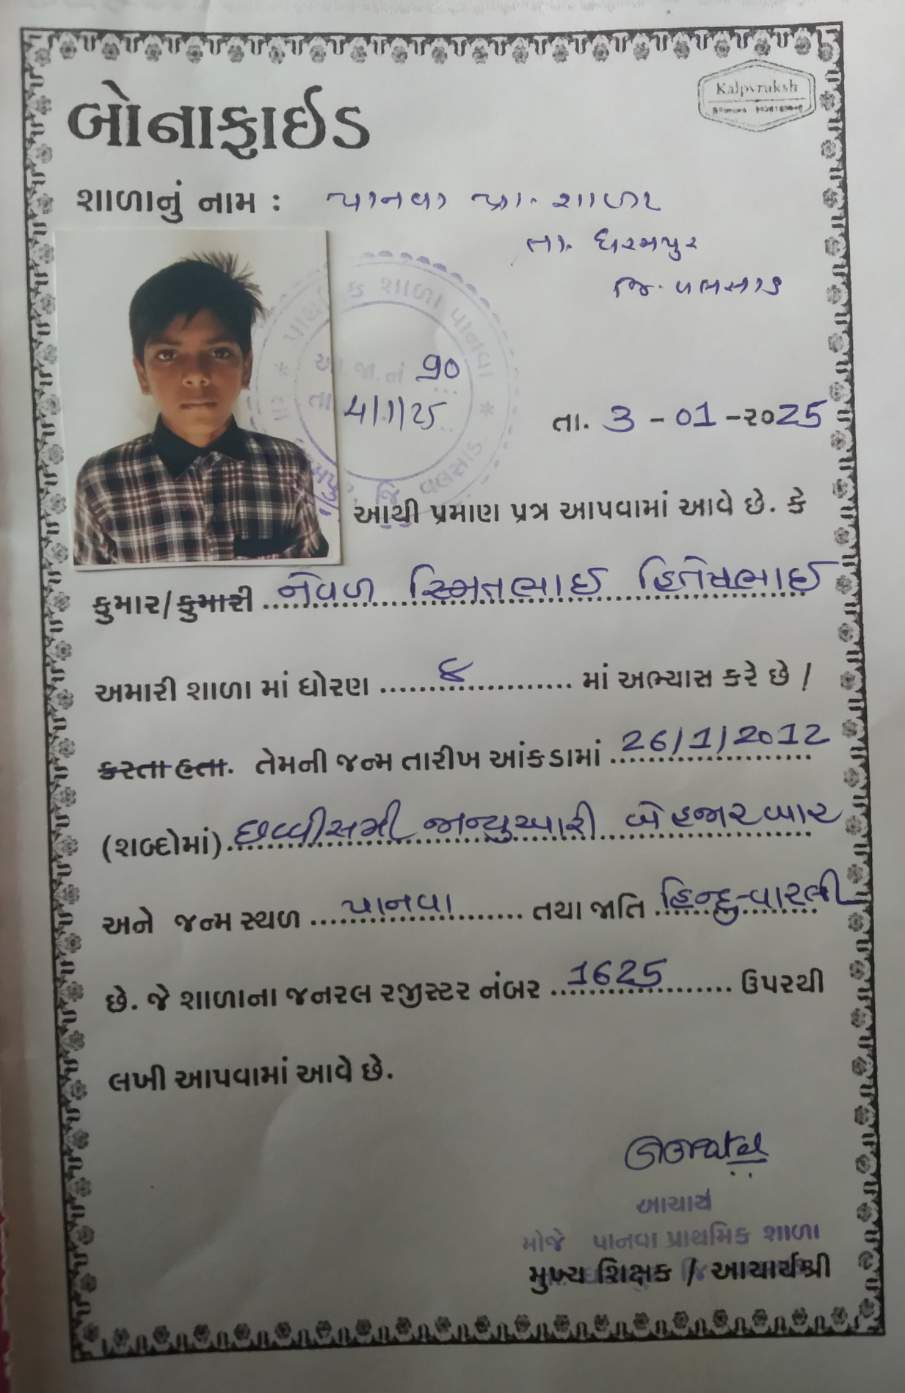 Kalpvruksh
બોનાફાઈડ
શાળાનું નામ : પાનવા પ્રા. શાળા
તા. ધરમપુર
જિ. વલસાડ
પ્રાથમિક શાળા પાનવા
આ.જા.નં ૧૦
તા 4/1/25
જિ વલસાડ
તા. 3-01-૨૦25
આથી પ્રમાણ પત્ર આપવામાં આવે છે. કે
કુમાર/કુમારી નેવળ સ્મિતભાઈ હિતેષભાઈ
અમારી શાળા માં ધોરણ ૪ માં અભ્યાસ કરે છે /
કરતા હતા. તેમની જન્મ તારીખ આંકડામાં 26/1/2012
(શબ્દોમાં) છવ્વીસમી જાન્યુઆરી બે હજાર બાર
અને જન્મ સ્થળ પાનવા તથા જાતિ હિન્દુ-વારલી
છે. જે શાળાના જનરલ રજીસ્ટર નંબર 1625 ઉપરથી
લખી આપવામાં આવે છે.
આચાર્ય
મોજે પાનવા પ્રાથમિક શાળા
મુખ્ય શિક્ષક / આચાર્યશ્રી